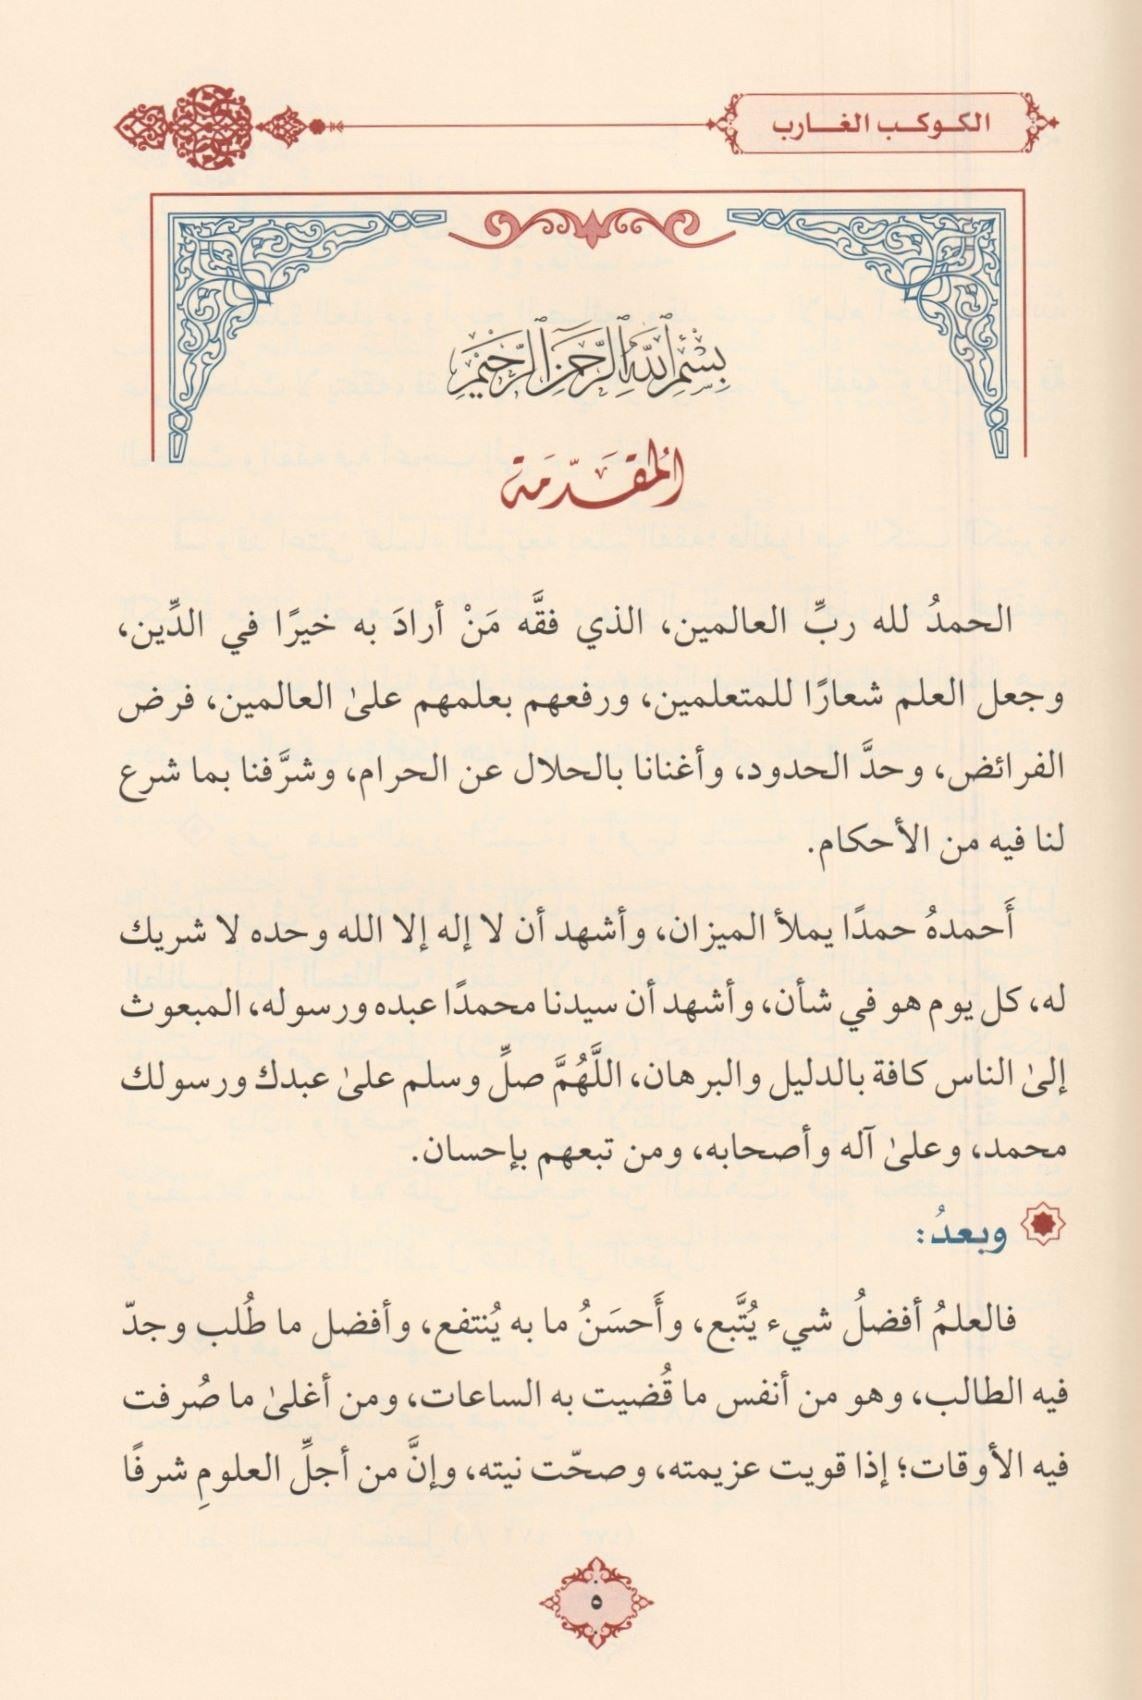 الكوكب الغارب
بسم الله الرحمن الرحيم
المقدمة
الحمدُ لله ربِّ العالمين، الذي فقَّه مَنْ أرادَ به خيرًا في الدِّين،
وجعل العلم شعارًا للمتعلمين، ورفعهم بعلمهم علىٰ العالمين، فرض
الفرائض، وحدَّ الحدود، وأغنانا بالحلال عن الحرام، وشرَّفنا بما شرع
لنا فيه من الأحكام.
أَحمدهُ حمدًا يملأ الميزان، وأشهد أن لا إله إلا الله وحده لا شريك
له، كل يوم هو في شأن، وأشهد أن سيدنا محمدًا عبده ورسوله، المبعوث
إلىٰ الناس كافة بالدليل والبرهان، اللَّهُمَّ صلِّ وسلم علىٰ عبدك ورسولك
محمد، وعلىٰ آله وأصحابه، ومن تبعهم بإحسان.
وبعدُ:
فالعلمُ أفضلُ شيء يُتَّبع، وأَحسَنُ ما به يُنتفع، وأفضل ما طُلب وجدّ
فيه الطالب، وهو من أنفس ما قُضيت به الساعات، ومن أغلىٰ ما صُرفت
فيه الأوقات؛ إذا قويت عزيمته، وصحّت نيته، وإنَّ من أجلِّ العلومِ شرفًا
٥